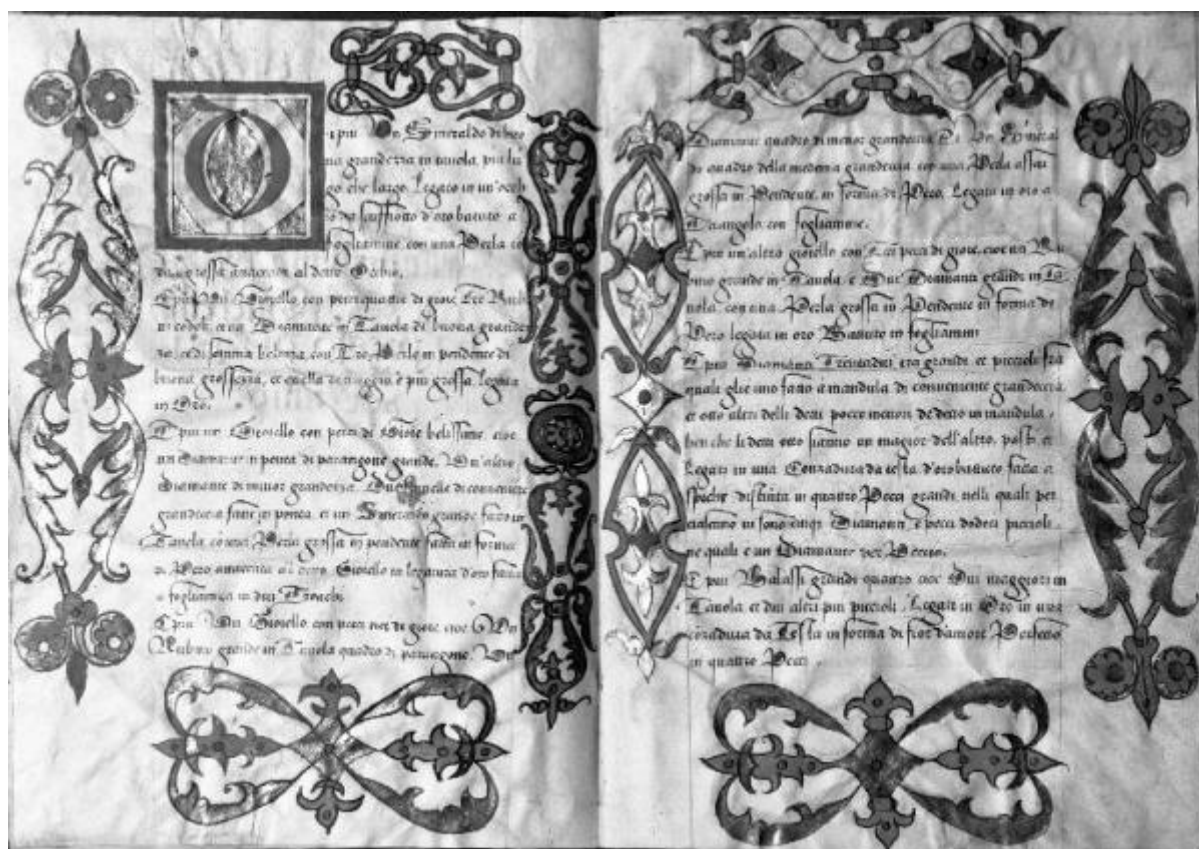 O
i piu Un Smeraldo di bo
na grandezza in tavola, piu lu
go che largo Legato in un'
d'oro batuto a
fogliamine con una Perla
grossa al detto
E piu Un Gioiello con pezzi quatro di gioie Tre Rubi
ni et un Diamante in Tavola di buona grandez
za, et di somma belezza, con Tre Perle in pendente di
buona grossezza, et quella di maggio è piu grossa legata
in Oro.
E piu un Gioiello con pezzi di Gioie belissime, cioe
un Diamante in ponta di paragone grande, Un'altro
Diamante di minor grandezza, di conveniente
grandezza fatti in ponta, et un Smeraldo grande fatto in
Tavola con una Perla grossa in pendente fatta in forma
di Pero al detto Gioiello in legatura d'oro fatta
a fogliamini in dui
E piu Un Gioiello con pezzi di gioie cioe Un
Rubino grande in Tavola quadro di paragone, Un
Diamante quadro di menor grandezza Et Un Smeral
do quadro della medema grandezza con una Perla assai
grossa in Pendente, in forma di Pero, Legata in oro a
Triangolo con fogliamine.
E piu un'altro gioiello con Tre pezzi di gioie, cioe un Ru
bino grande in Tavola, e Dui Diamanti grandi in Ta
vola, con una Perla grossa in Pendente in forma di
Pero legata in oro Batuto in fogliamini
E piu Diamanti Trentadui tra grandi et piccioli fra
quali glie uno fatto a mandula di conveniente grandecera
et otto altri delli detti pocco menori de detto in mandula,
ben che li detti otto siano un magior dell'altro, posti et
Legati in una Conzadura da testa d'oro batuto fatta a
distinta in quattro Pecci grandi nelli quali per
in sono Diamanti è pecci dodeci piccioli
ne quali e un Diamante per Peccio.
E piu Balassi grandi quatro cioe Dui maggiori in
Tavola et dui altri piu piccioli, Legati in Oro in una
conzadura da Testa in forma di fior d'amore
in quattro Pecci.